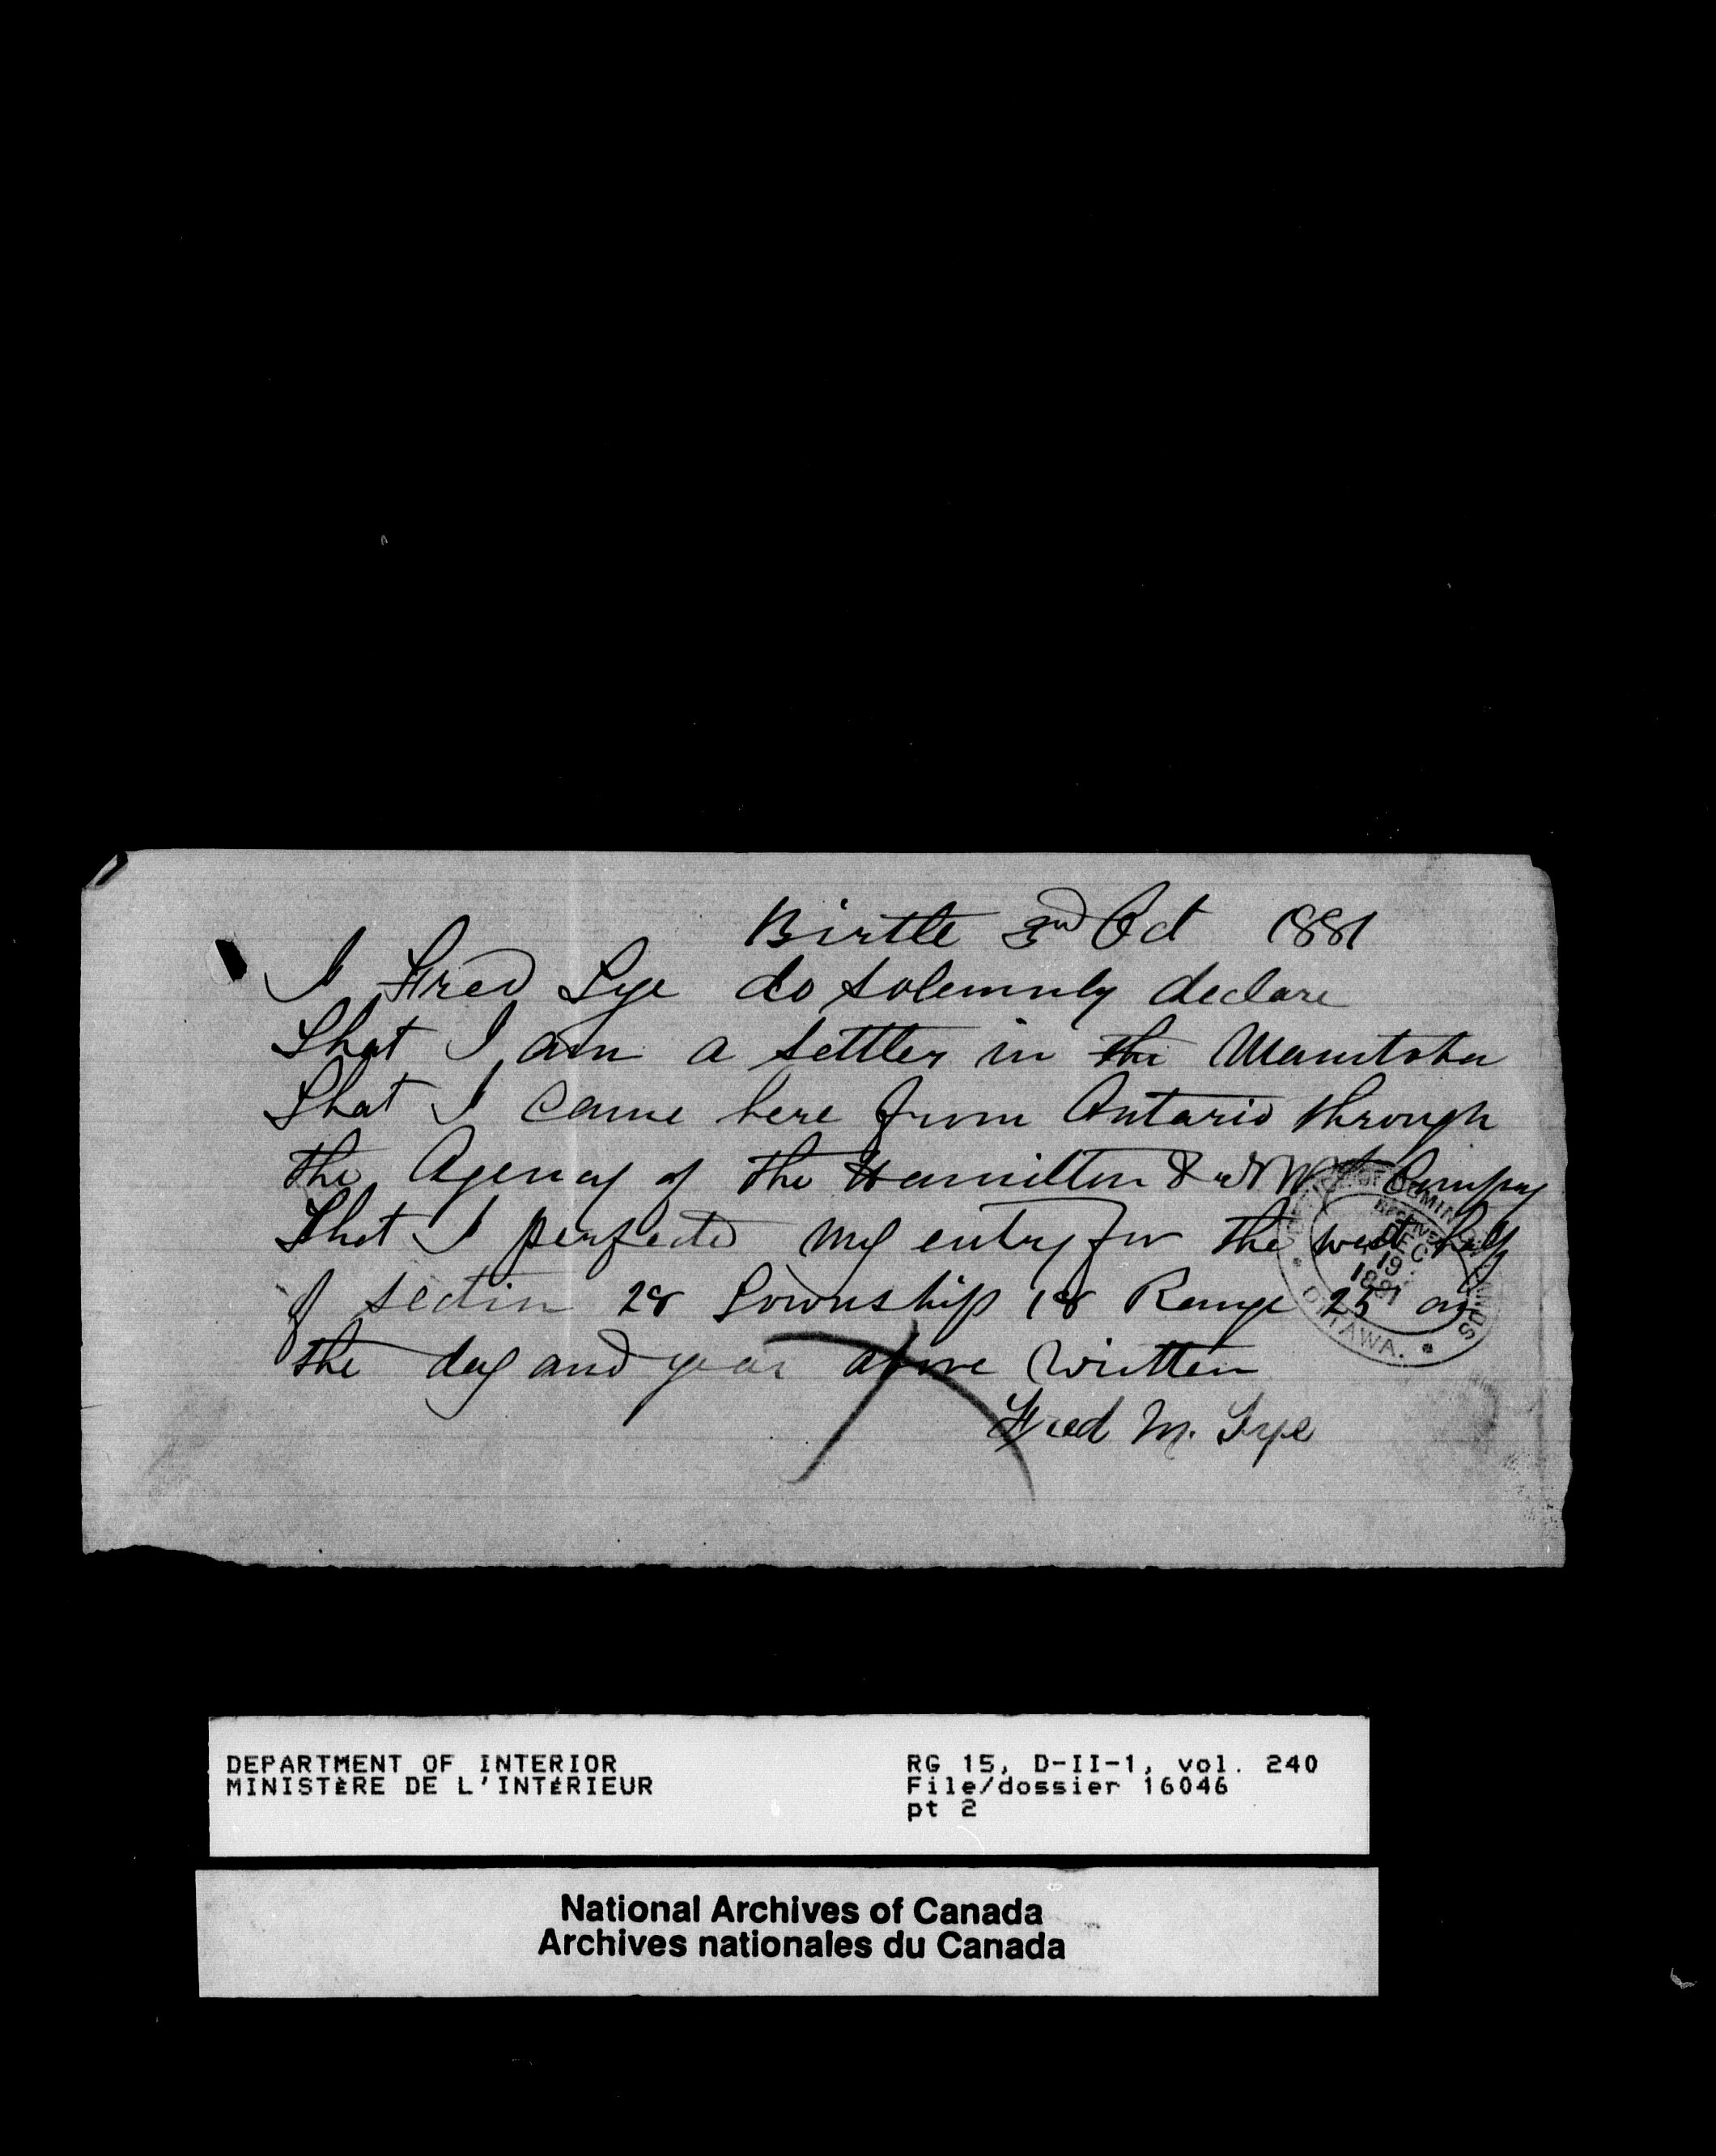 Birtle 3rd Oct 1881
I Fred Tye do solemnly declare
That I am a settler in the Manitoba
That I came here from Ontario through
the Agency of the Hamilton & N W Compay
That I perfected my entry for the west half
of section 28 Township 18 Range 25 on
the day and year above written
Fred M. Tye
OFFICE OF DOMINION LANDS
RECEIVED
DEC
19
1881
OTTAWA.
DEPARTMENT OF INTERIOR
MINISTÈRE DE L'INTÉRIEUR
RG 15, D-II-1, vol. 240
File/dossier 16046
pt 2
National Archives of Canada
Archives nationales du Canada